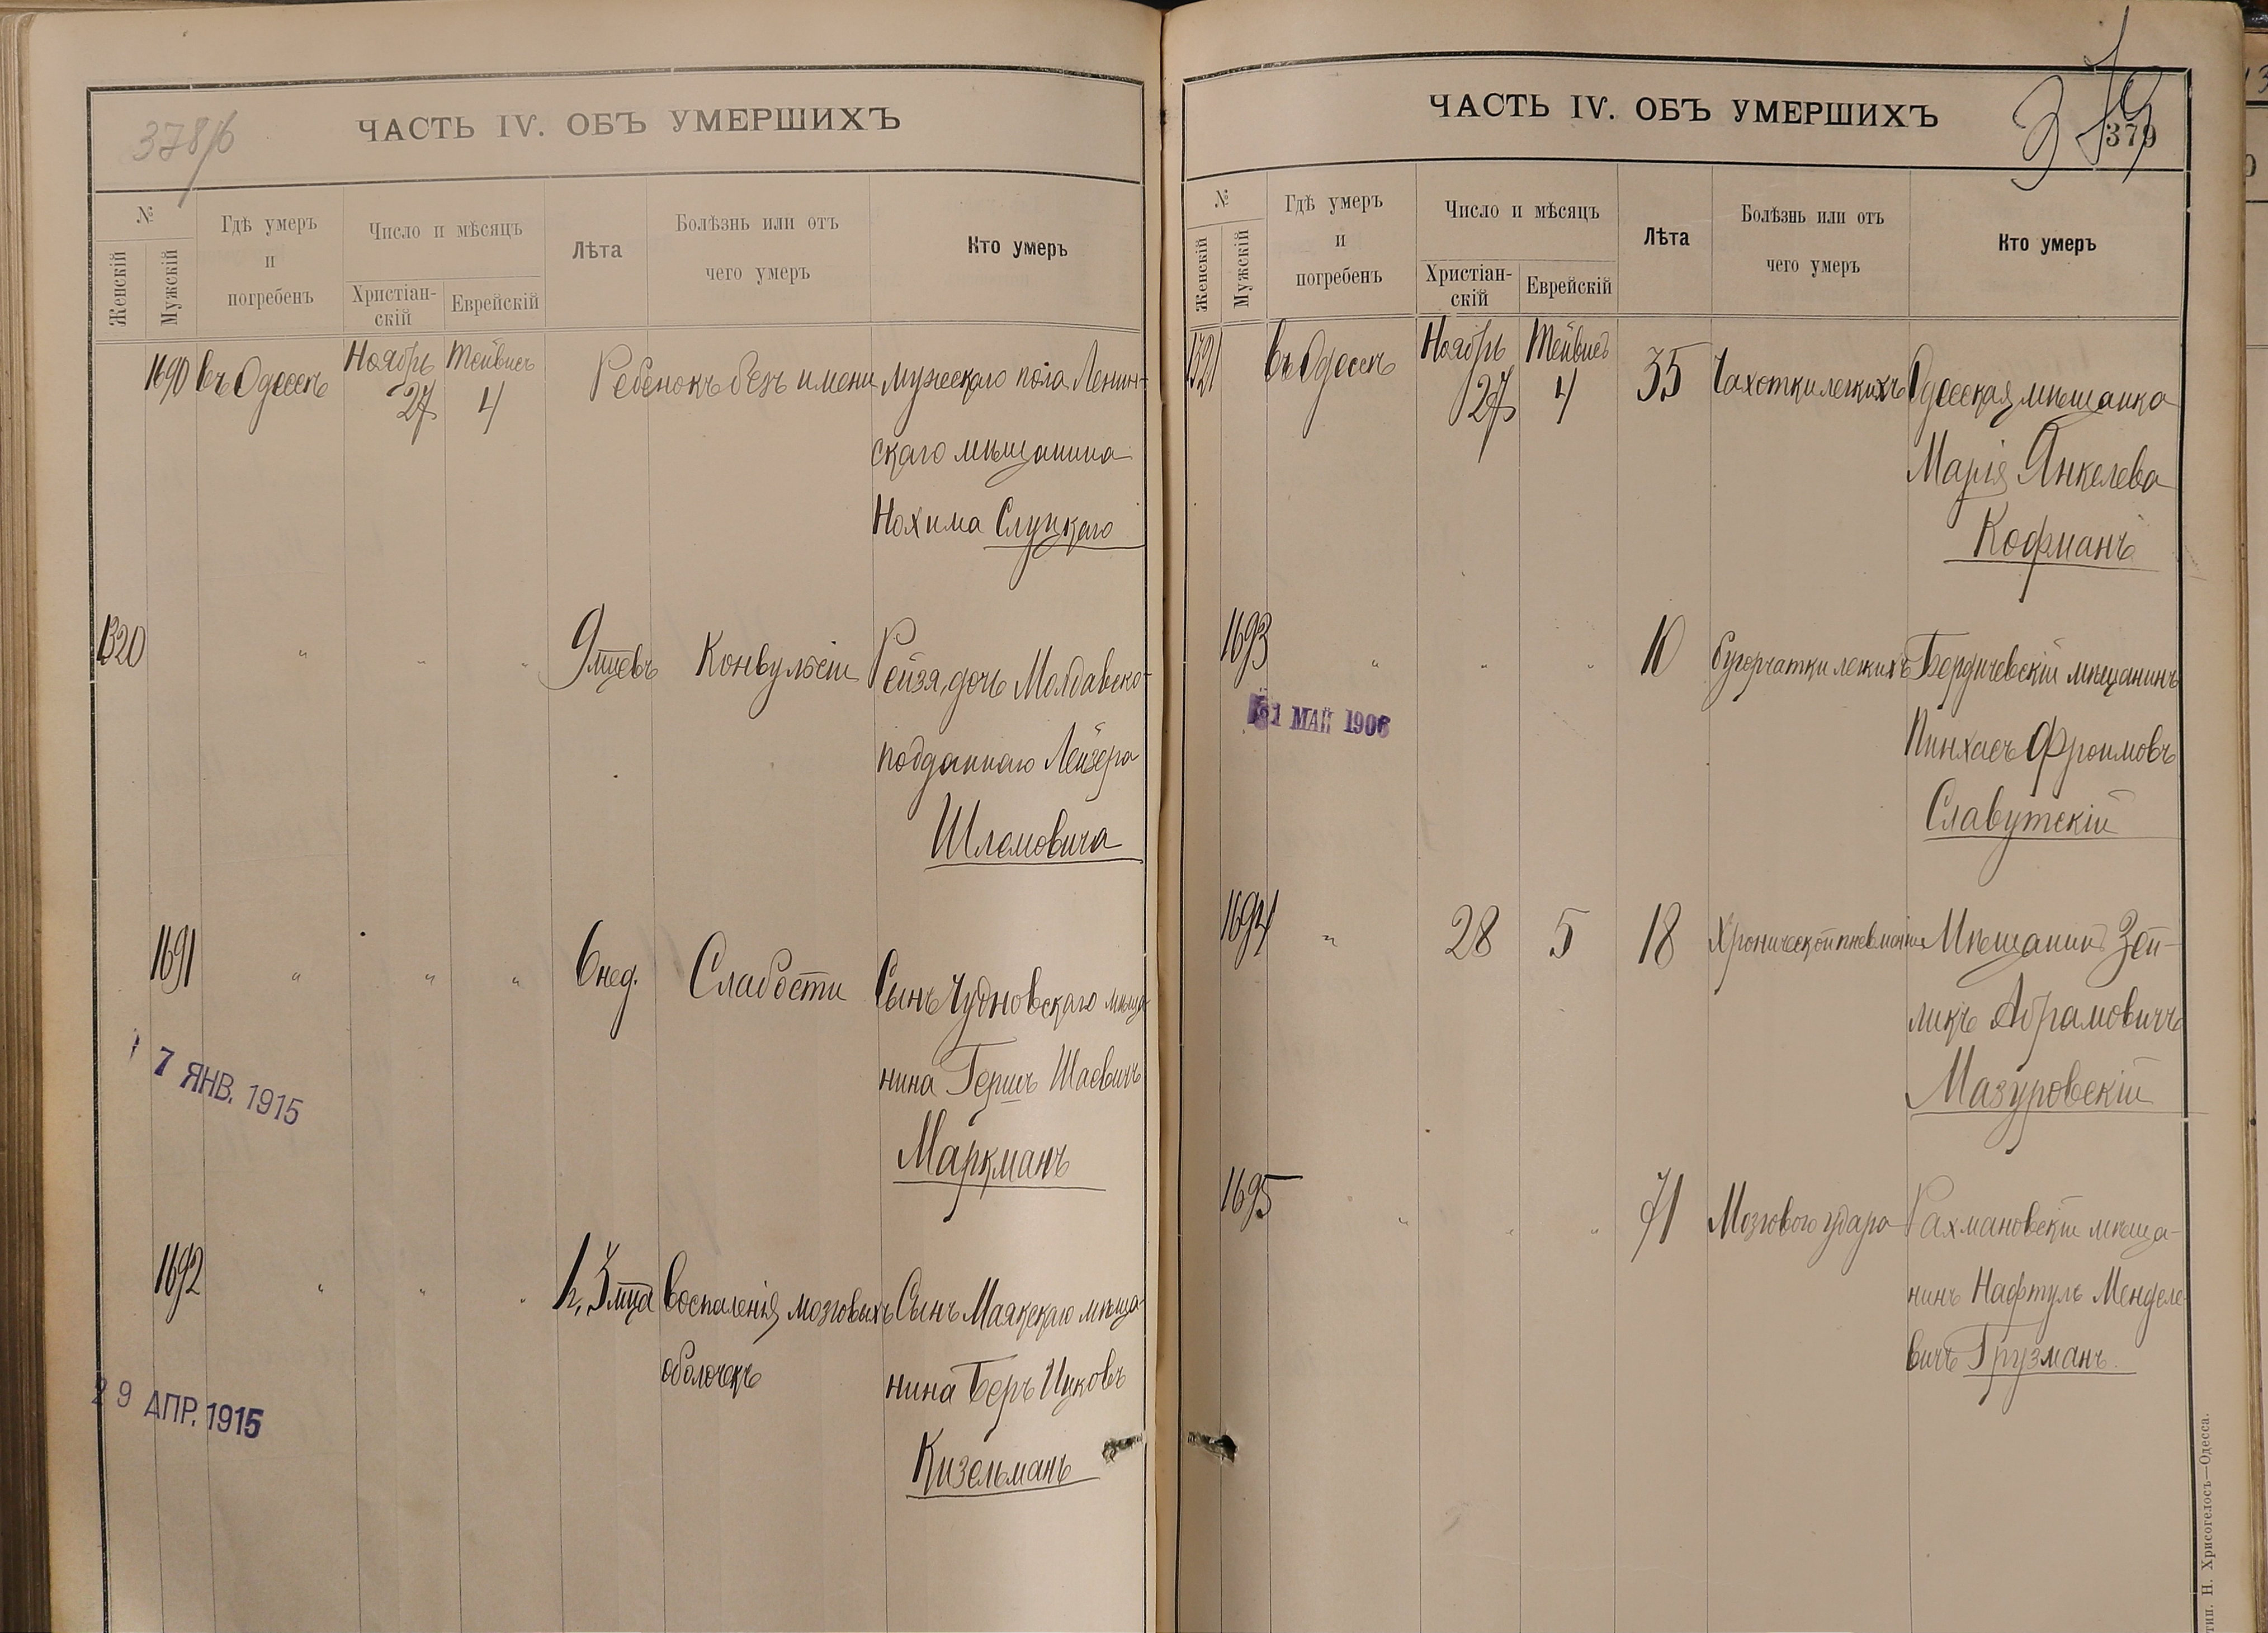 378/б
ЧАСТЬ IV. ОБЪ УМЕРШИХЪ
№
Женскій
Мужскій
Гдѣ умеръ
и
погребенъ
Число и мѣсяцъ
Христіан-
скій
Еврейскій
Лѣта
Болѣзнь или отъ
чего умеръ
Кто умеръ
1690 въ Одессѣ Ноябрь 27 Тейвисъ 4 Ребенокъ безъ имени мужескаго пола Ленин-
скаго мѣщанина
Нохима Слуцкаго
1320 " " " 9 мцевъ Конвульсіи Рейзя, дочь Молдавско-
подданнаго Лейзера
Шлемовича
1691 " " " 6 нед. Слабости Сынъ Чудновскаго мѣща-
нина Гершъ Шаевичъ
Маркманъ
17 ЯНВ. 1915
1692 " " " 1 г. 3 мца Воспаленія мозговыхъ Сынъ Маякскаго мѣща-
оболочекъ нина Беръ Ицковъ
Кизельманъ
29 АПР. 1915
ЧАСТЬ IV. ОБЪ УМЕРШИХЪ
379
379
№
Женскій
Мужскій
Гдѣ умеръ
и
погребенъ
Число и мѣсяцъ
Христіан-
скій
Еврейскій
Лѣта
Болѣзнь или отъ
чего умеръ
Кто умеръ
1321 въ Одессѣ Ноябрь 27 Тейвисъ 4 35 Чахотки легкихъ Одесская мѣщанка
Марія Янкелева
Кофманъ
1693 " " " 10 бугорчатки легкихъ Бердичевскій мѣщанинъ
Пинхасъ Фроимовъ
Славутскій
МАЙ 1906
1694 " 28 5 18 Хронической пневмоніи Мѣщанинъ Зей-
ликъ Абрамовичъ
Мазуровскій
1695 " " " 71 Мозгового удара Рахмановскій мѣща-
нинъ Нафтуль Менделе-
вичъ Грузманъ.
тип. Н. Хрисогелосъ—Одесса.